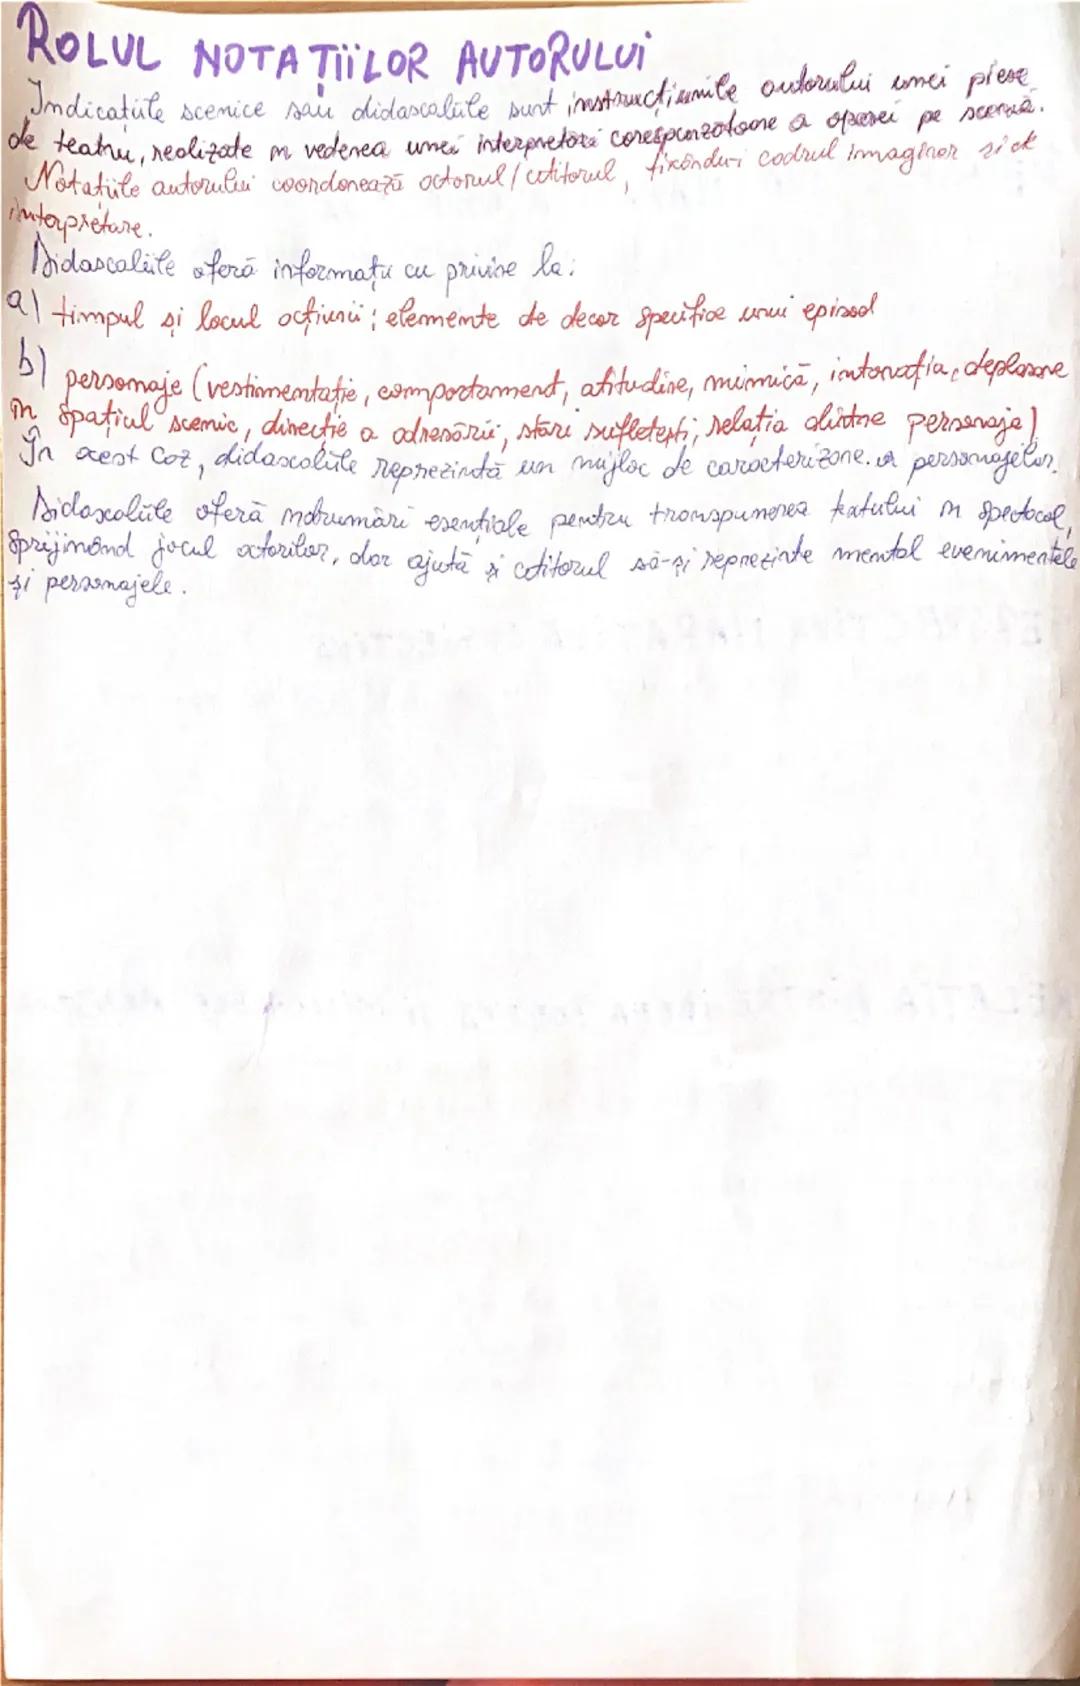 ROLUL NOTAȚIILOR AUTORULUI
Indicațiile scenice sau didascaliile sunt instrucțiunile autorului unei piese
de teatru, realizate în vederea unei interpretări corespunzătoare a operei pe scenă.
Notațiile autorului coordonează actorul/cititorul, fixându-i cadrul imaginar și de
interpretare.
Didascaliile oferă informații cu privire la:
a) timpul și locul acțiunii; elemente de decor specifice unui episod
b) personaje (vestimentație, comportament, atitudine, mimică, intonația, deplasare
în spațiul scenic, direcție a adresării, stări sufletești, relația dintre personaje)
În acest caz, didascaliile reprezintă un mijloc de caracterizare a personajelor.
Didascaliile oferă îndrumări esențiale pentru transpunerea textului în spectacol,
sprijinând jocul actorilor, dar ajută și cititorul să-și reprezinte mental evenimentele
și personajele.